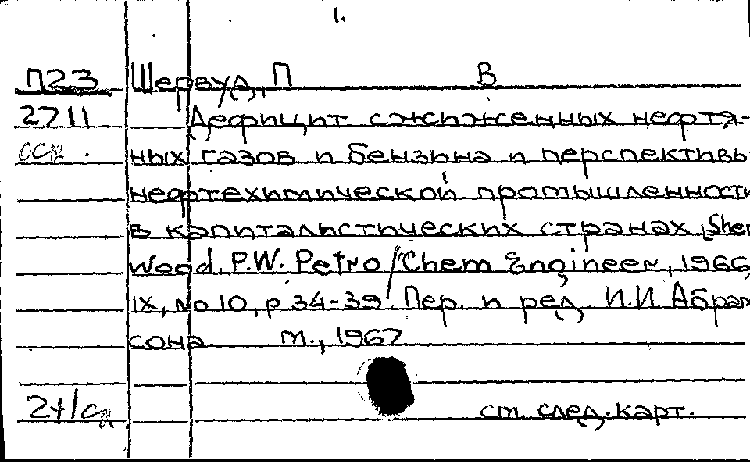 1.
П23 Шервуд, П В
2711 Дефицит сжиженных нефтя-
ных газов и бензина и перспективы
нефтехимической промышленности
в капиталистических странах, Sher
Wood, P.W. Petro/Chem Engineer, 1966,
IX, No 10, p 34-39. Пер. и ред. И.И Абрам
сона м., 1967
см. след. карт.